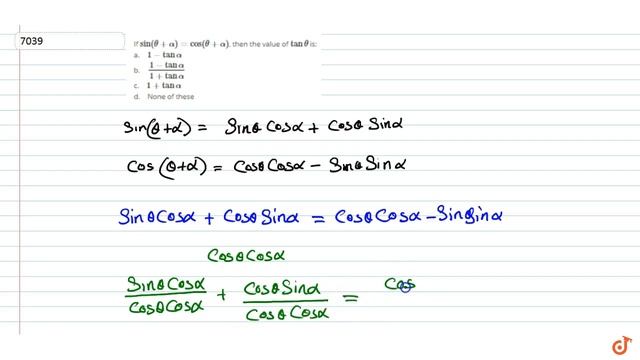 7039
If sin(θ + α) = cos(θ + α), then the value of tan θ is:
a. 1 − tan α
b. (1 − tan α)/(1 + tan α)
c. 1 + tan α
d. None of these
Sin(θ+α) = Sinθ Cosα + Cosθ Sinα
Cos(θ+α) = Cosθ Cosα − Sinθ Sinα
Sinθ Cosα + Cosθ Sinα = Cosθ Cosα − Sinθ Sinα
Cosθ Cosα
Sinθ Cosα/Cosθ Cosα + Cosθ Sinα/Cosθ Cosα = Cos